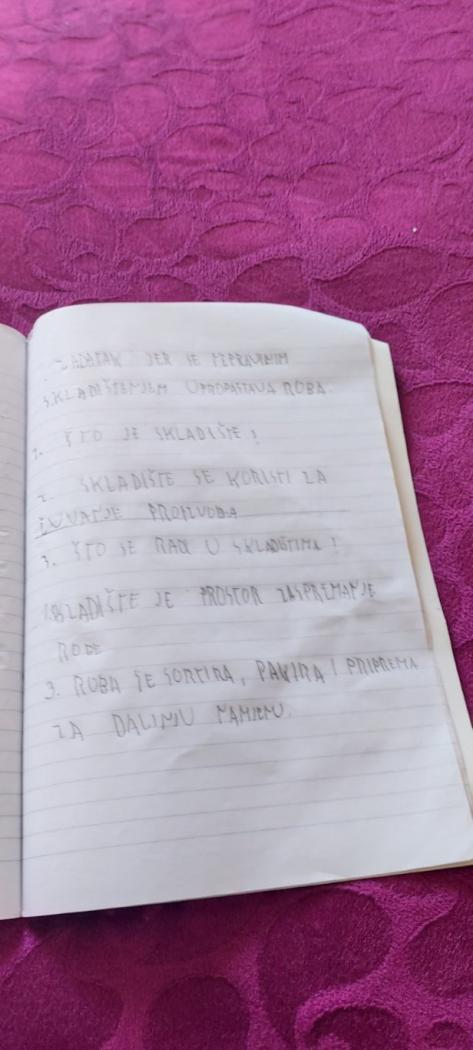 ZADATAK JER JE NEPRAVILNIM
SKLADIŠTENJEM UPROPASTAVA ROBA.
1. ŠTO JE SKLADIŠTE?
2. SKLADIŠTE SE KORISTI ZA
ČUVANJE PROIZVODA
3. ŠTO SE RADI U SKLADIŠTIMA?
1. SKLADIŠTE JE PROSTOR ZA SPREMANJE
ROBE
3. ROBA SE SORTIRA, PAKIRA I PRIPREMA
ZA DALJNJU NAMJENU.